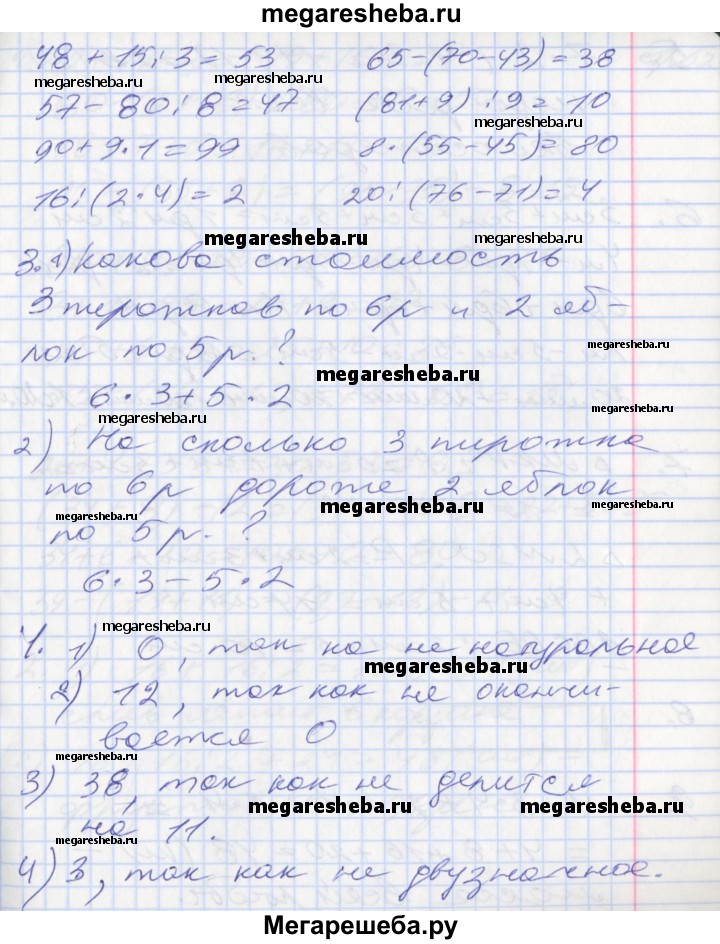 megaresheba.ru
48 + 15 : 3 = 53 65-(70-43) = 38
megaresheba.ru megaresheba.ru
57 - 80 : 8 = 47 (81+9) : 9 = 10
megaresheba.ru
90 + 9 · 1 = 99 8 · (55-45) = 80
16 : (2 · 4) = 2 20 : (76-71) = 4
megaresheba.ru
3. 1) какова стоимость
3 пирожков по 6р и 2 яб-
megaresheba.ru
лок по 5 р. ?
megaresheba.ru
6 · 3 + 5 · 2
megaresheba.ru megaresheba.ru
2) На сколько 3 пирожка
по 6р дороже 2 яблок
megaresheba.ru megaresheba.ru megaresheba.ru
по 5 р. ?
6 · 3 - 5 · 2
megaresheba.ru
4. 1) 0, так ка не натуральное
megaresheba.ru
2) 12, так как не оканчи-
вается 0
megaresheba.ru
3) 38, так как не делится
megaresheba.ru megaresheba.ru
на 11.
megaresheba.ru
4) 3, так как не двузначное.
Мегарешеба.ру